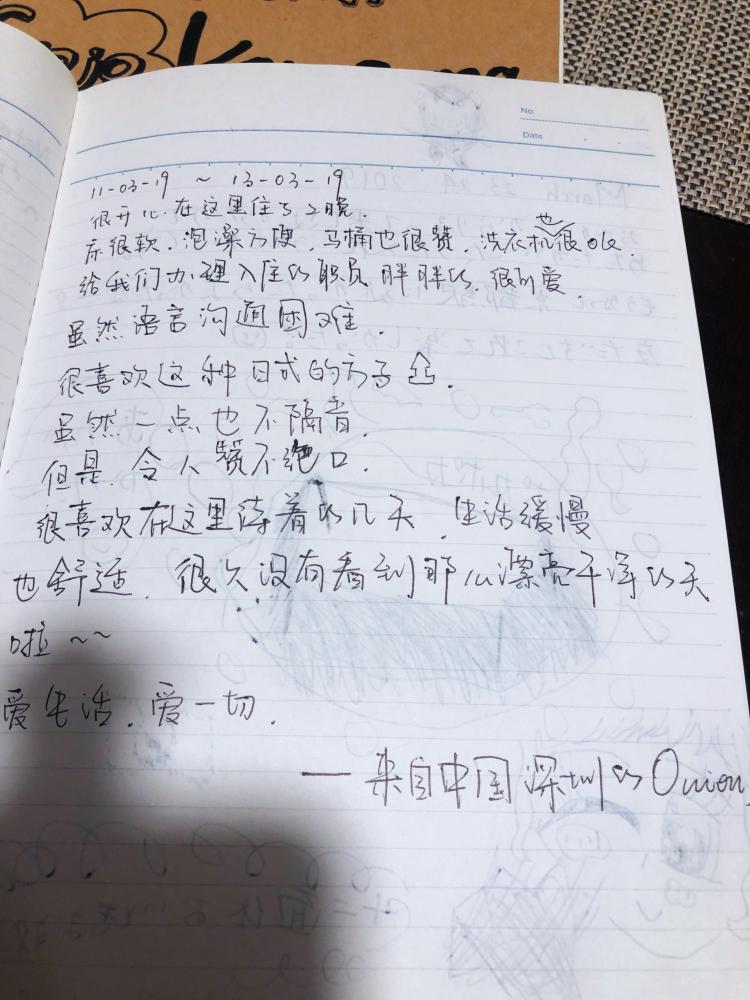 No.
Date
11-03-19 ~ 13-03-19
很开心 在这里住了2晚.
床很软. 泡澡方便, 马桶也很赞, 洗衣机也很OK.
给我们办理入住的职员 胖胖的. 很可爱.
虽然语言沟通困难.
很喜欢这种日式的房子
虽然一点也不隔音.
但是. 令人赞不绝口.
很喜欢在这里待着的几天. 生活缓慢
也舒适. 很久没有看到那么漂亮干净的天
啦~~
爱生活. 爱一切.
— 来自中国深圳的Onion.